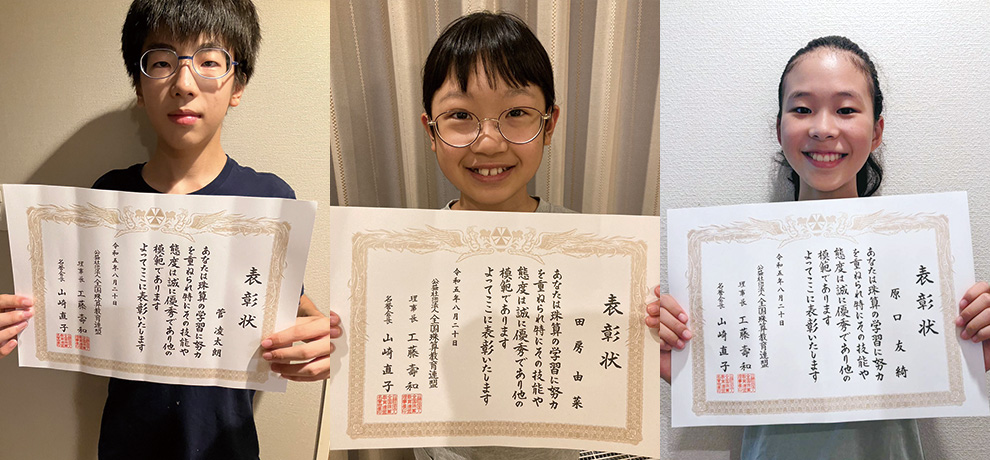 表彰状
菅 凌太朗
あなたは珠算の学習に努力
を重ねられ特にその技能や
態度は誠に優秀であり他の
模範であります
よってここに表彰いたします
令和五年八月二十日
公益社団法人全国珠算教育連盟
理事長 工藤壽和
名誉会長 山崎直子
表彰状
田房由菜
あなたは珠算の学習に努力
を重ねられ特にその技能や
態度は誠に優秀であり他の
模範であります
よってここに表彰いたします
令和五年八月二十日
公益社団法人全国珠算教育連盟
理事長 工藤壽和
名誉会長 山崎直子
表彰状
原口友綺
あなたは珠算の学習に努力
を重ねられ特にその技能や
態度は誠に優秀であり他の
模範であります
よってここに表彰いたします
令和五年八月二十日
公益社団法人全国珠算教育連盟
理事長 工藤壽和
名誉会長 山崎直子